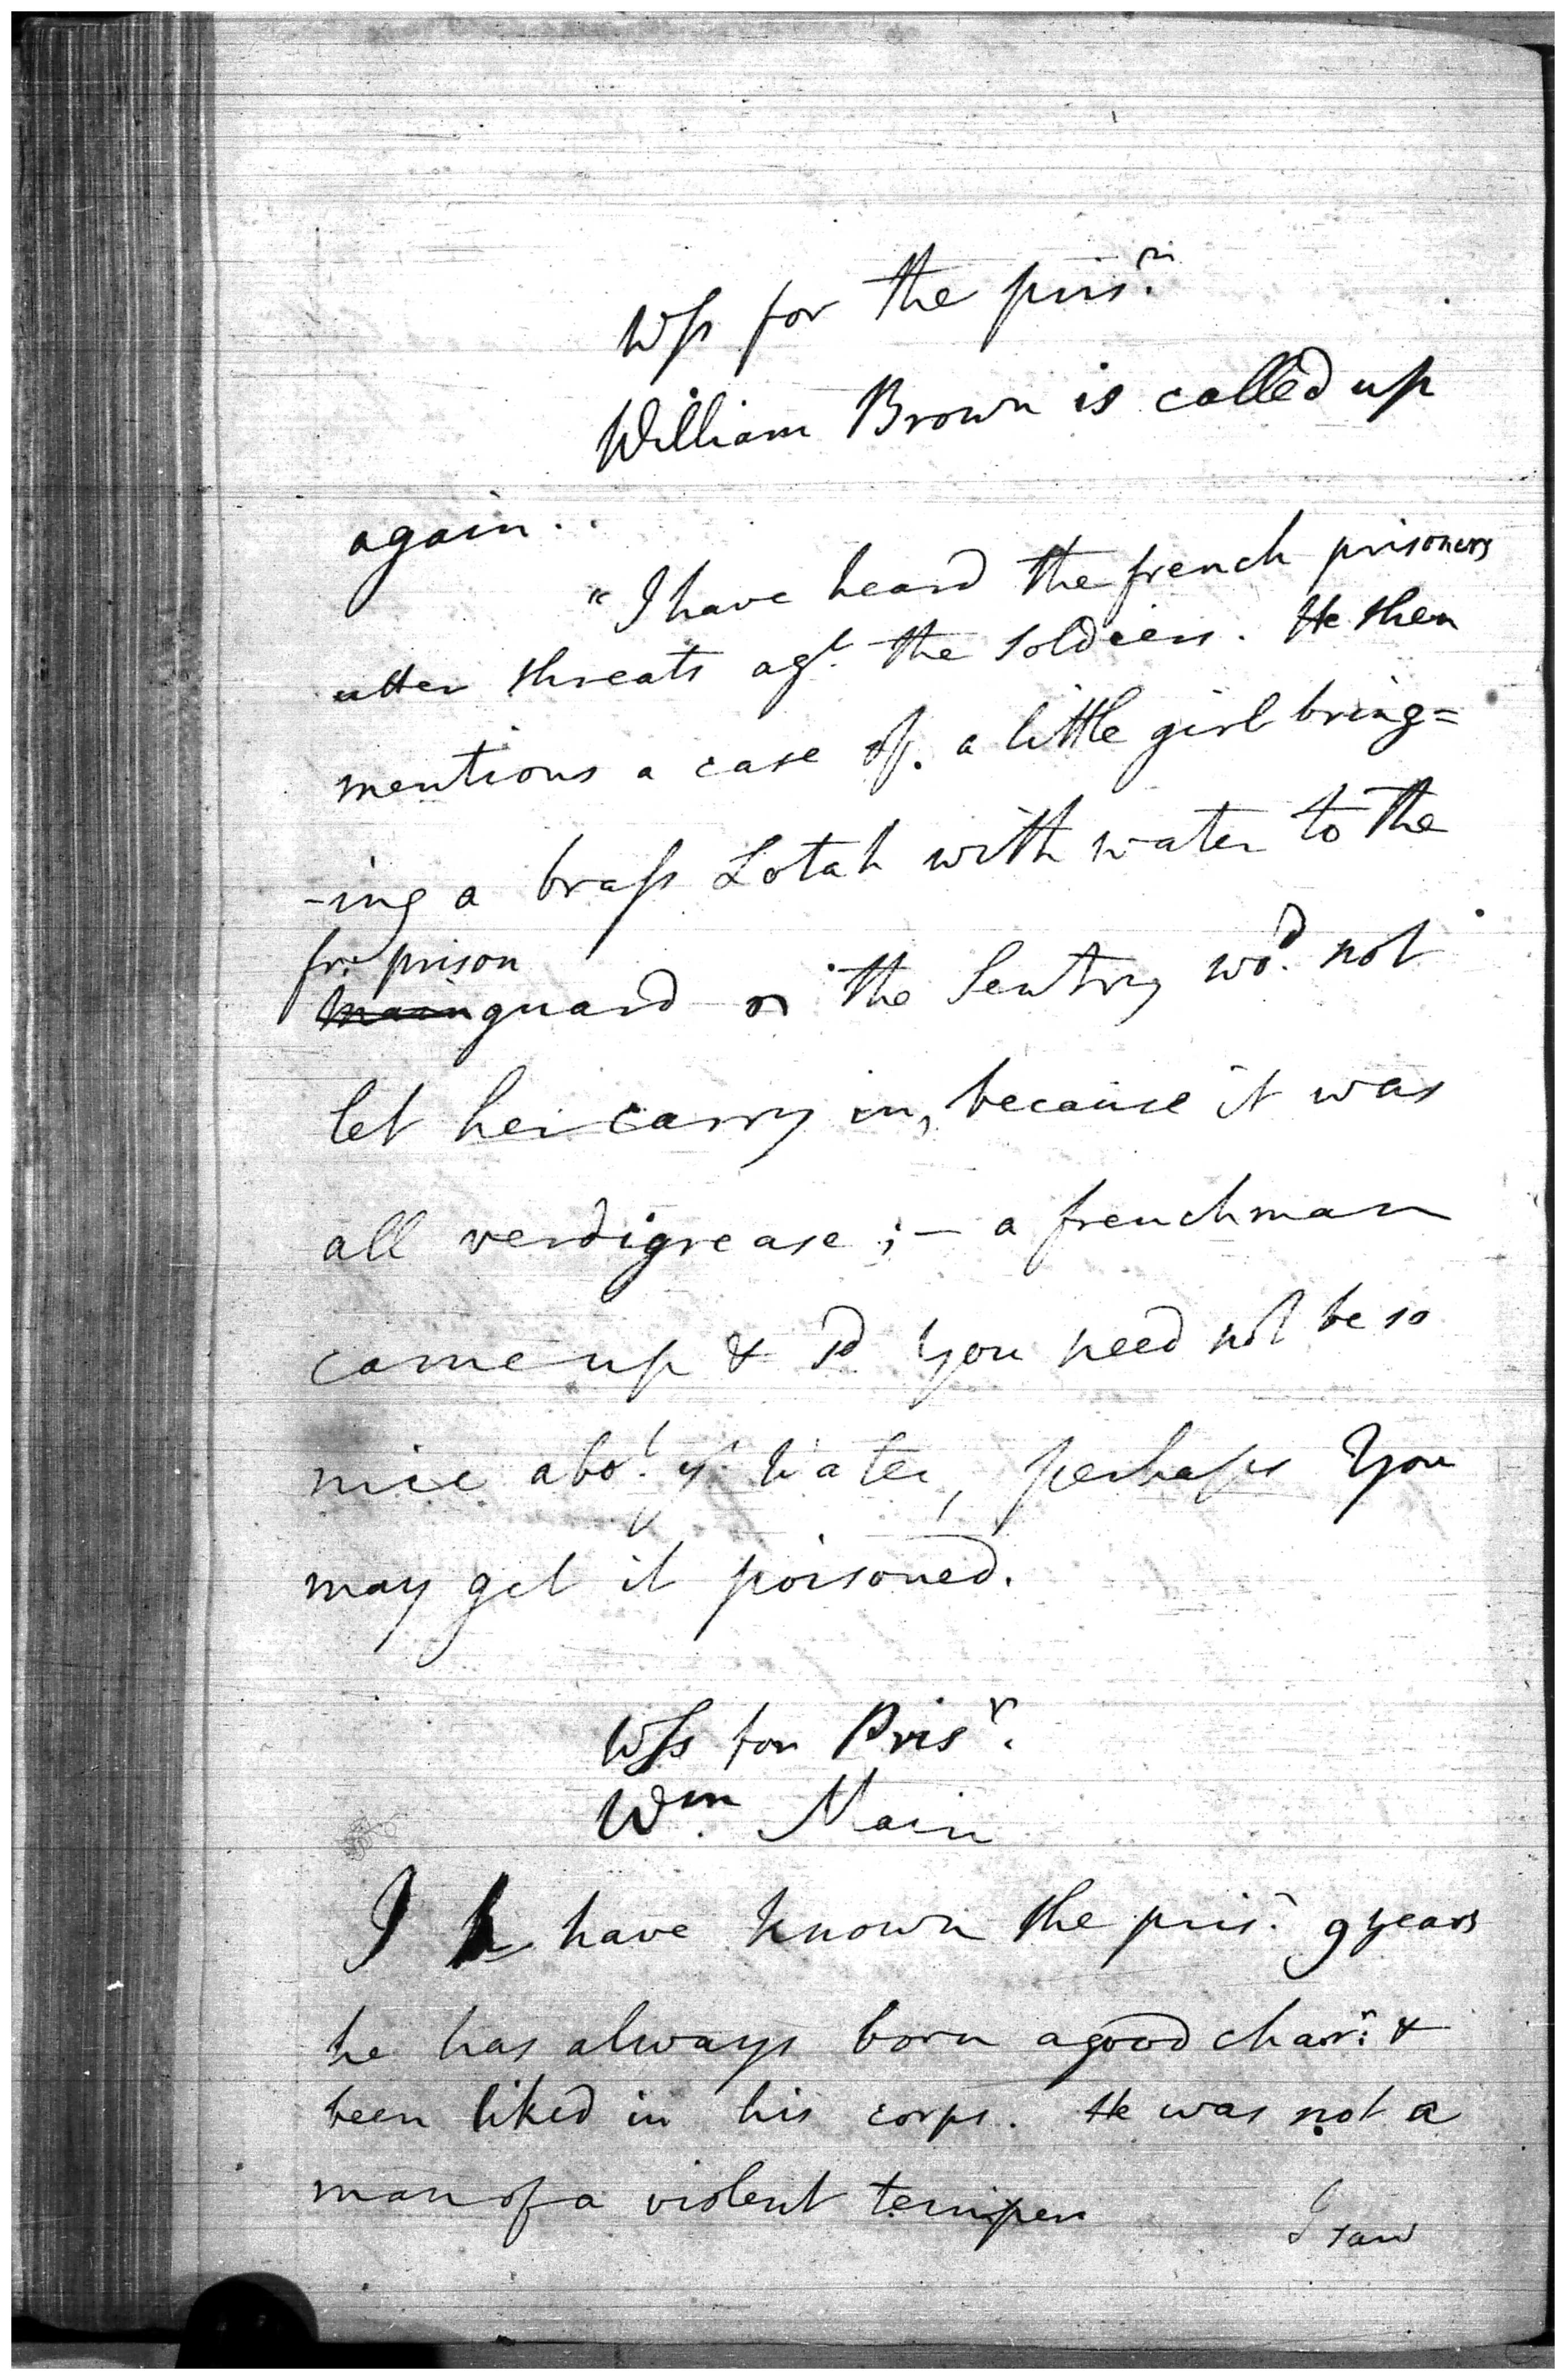 Wss for the pris.r
William Brown is called up
again..
"I have heard the french prisoners
utter threats agt. the soldiers. He then
mentions a case of. a little girl bring=
-ing a brass Lotah with water to the
fr: prison
main guard & the Sentry wo.d not
let her carry in, because it was
all verdigrease ;- a frenchman
came up & sd You need not be so
nice abo.t yr. water, perhaps You
may get it poisoned.
Wss for Pris.r
Wm. Main
I h have known the pris.r 9 years
he has always born a good char.r: &
been liked in his corps. He was not a
man of a violent temper
I saw